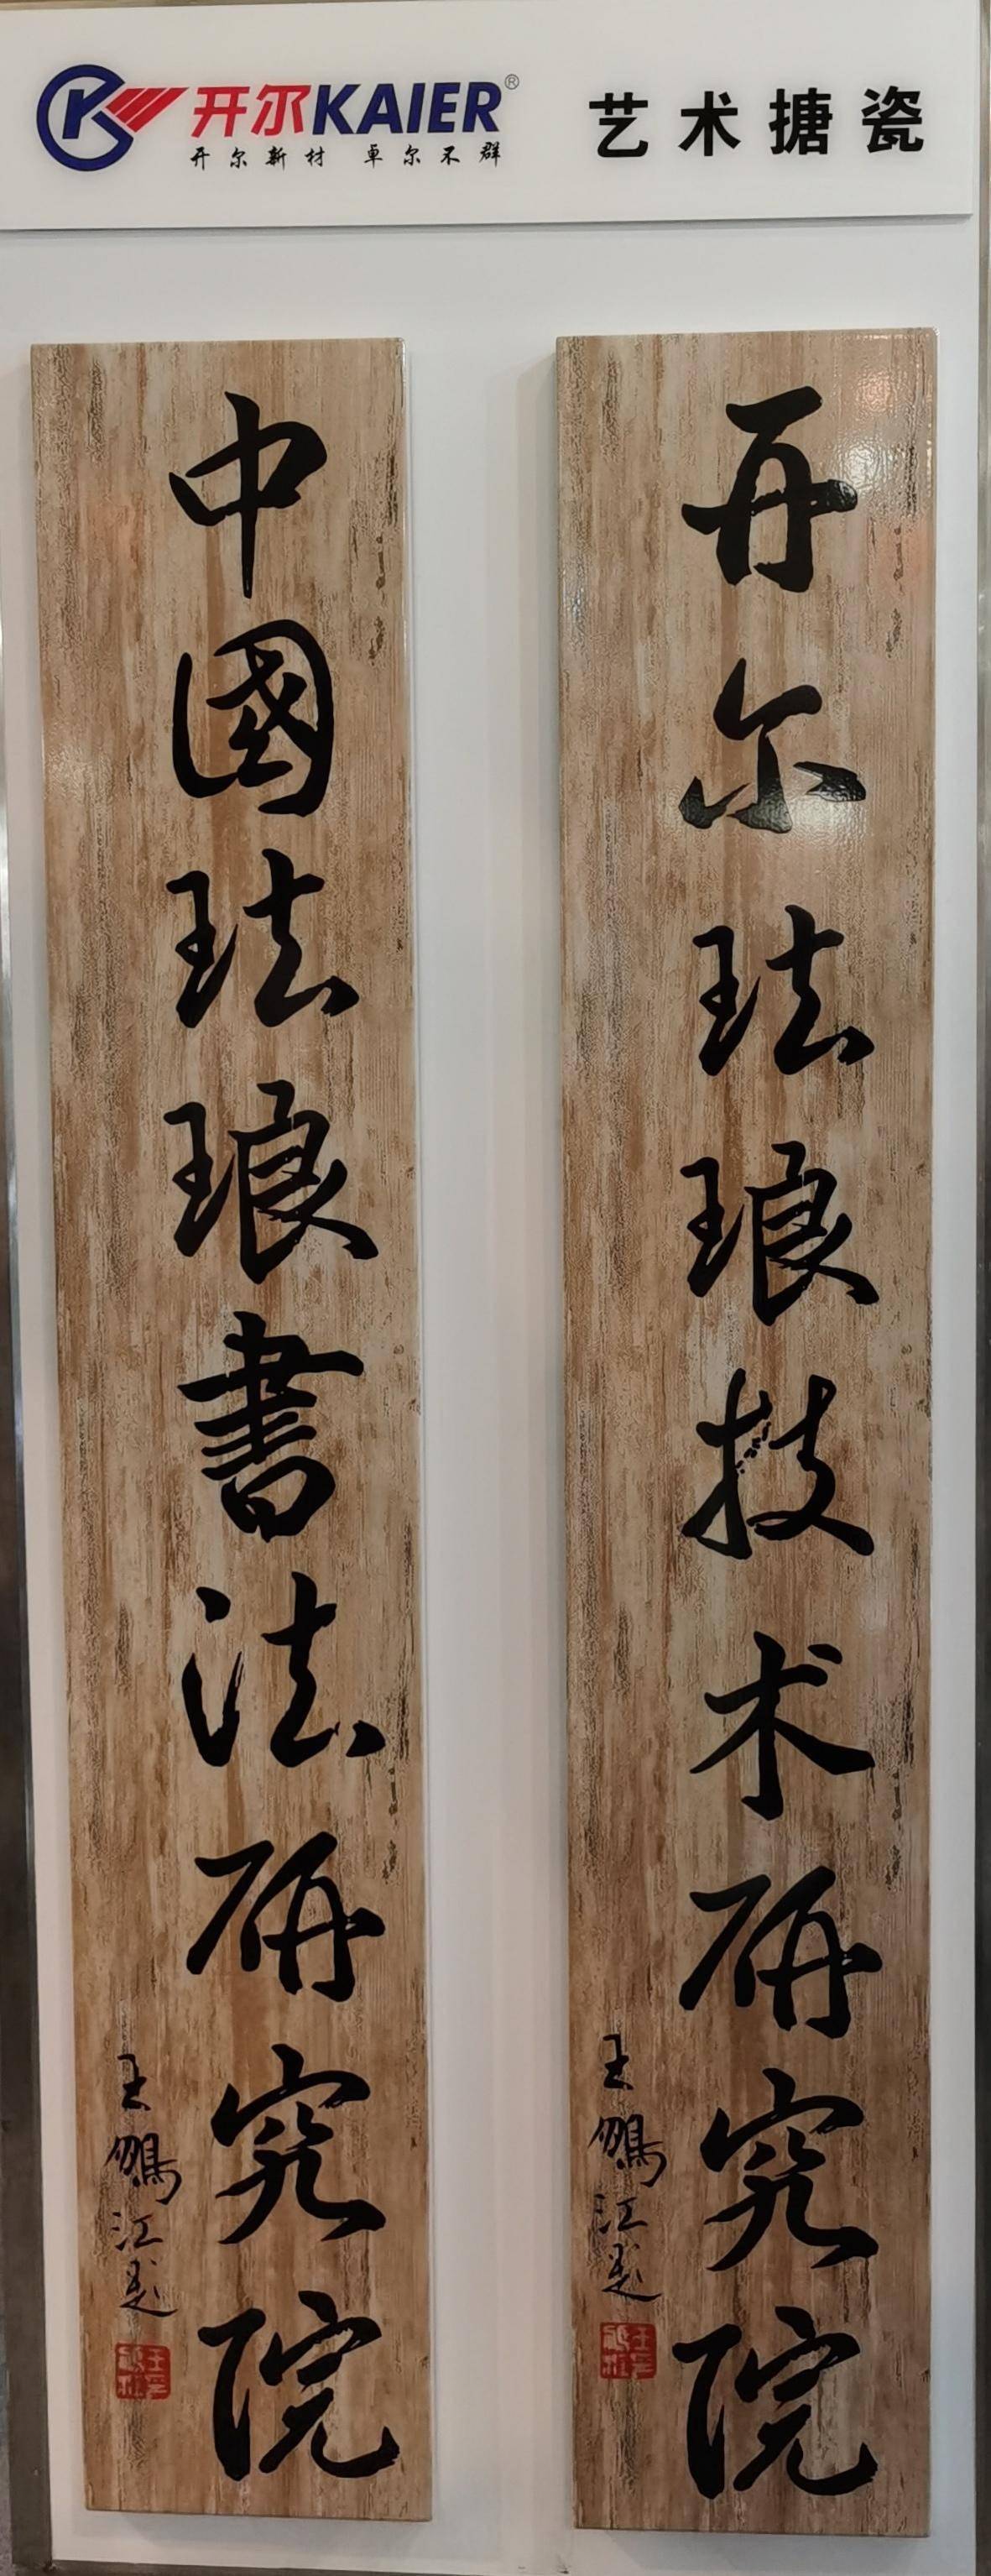 开尔KAIER®
开尔新材 卓尔不群
艺术搪瓷
开尔珐琅技术研究院
王鹏江题
中國珐琅書法研究院
王鹏江题